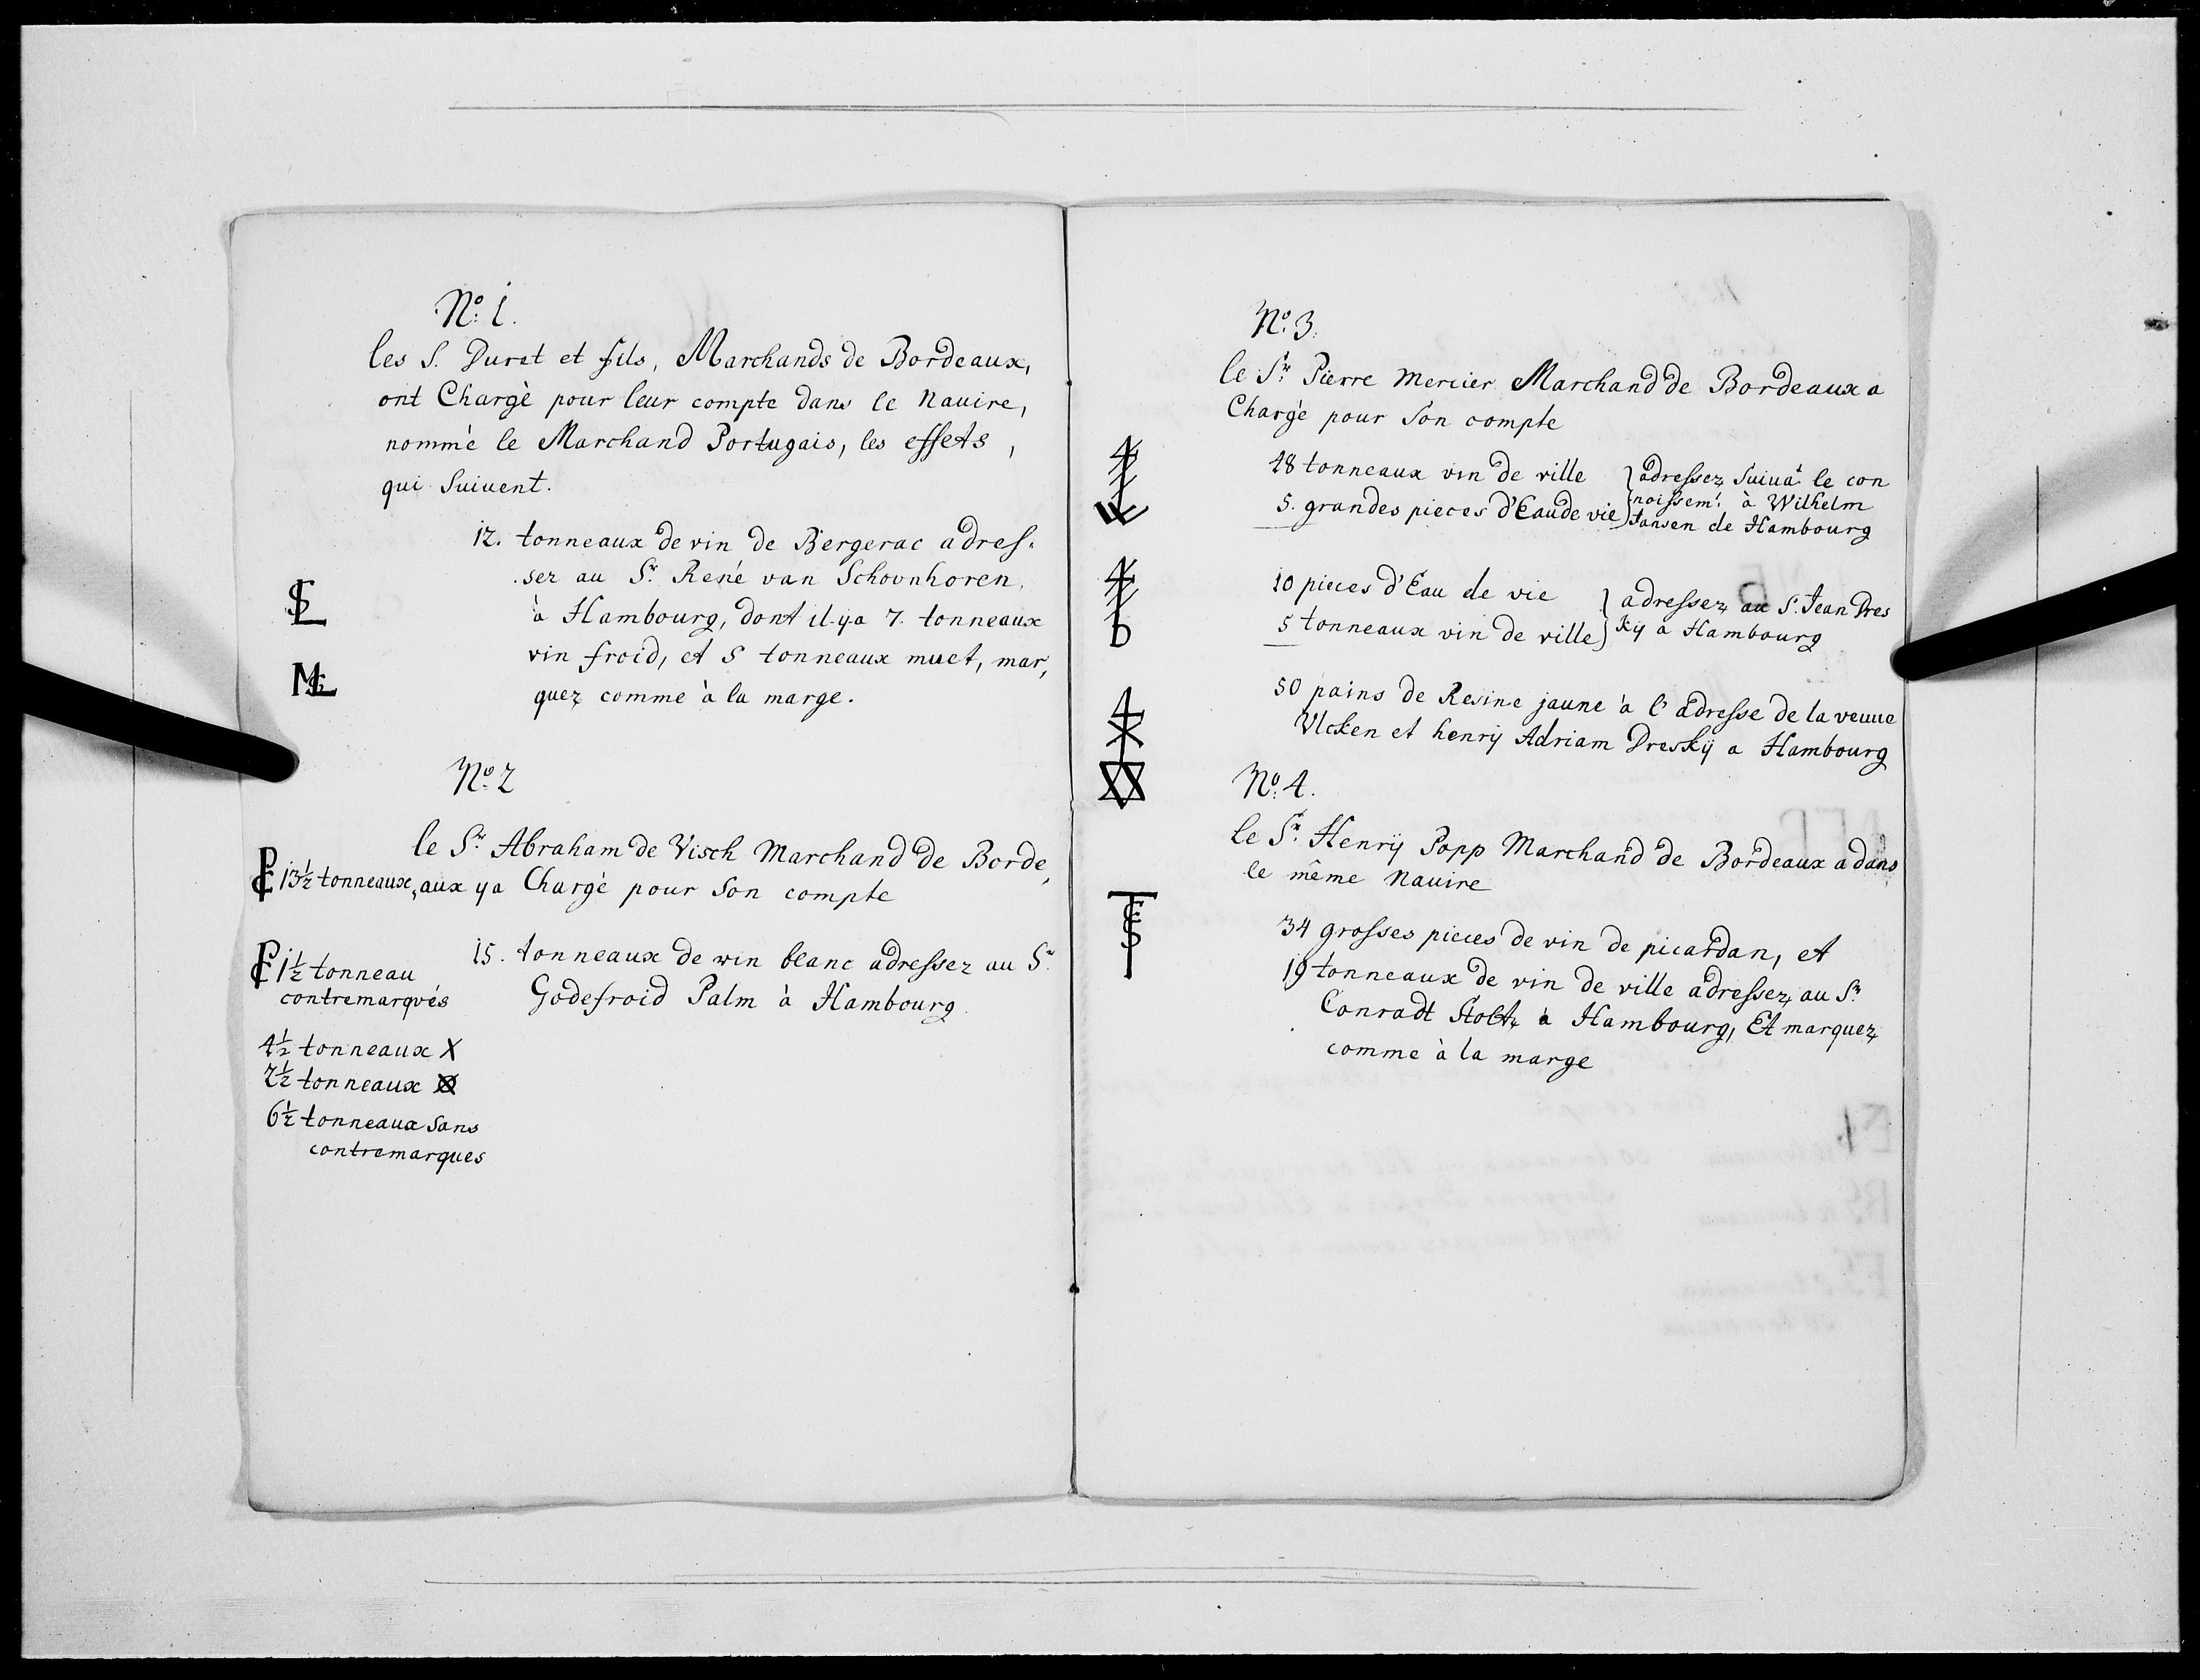 No. 1.
les S. Duret et fils, Marchands de Bordeaux,
ont Chargé pour leur compte dans le Nauire,
nommé le Marchand Portugais, les effets,
qui Suiuent.
12. tonneaux de vin de Bergerac adres-
ser au Sr. René van Schoonhoren,
à Hambourg, dont il y a 7. tonneaux
vin froid, et 5 tonneaux muet, mar,
quez comme à la marge.
SL
No. 2
le Sr. Abraham de Visch Marchand de Borde,
aux y a Chargé pour Son compte
13½ tonneaux,
15. tonneaux de vin blanc adressez au Sr.
Godefroid Palm à Hambourg
1½ tonneau
contremarqués
4½ tonneaux X
2½ tonneaux
6½ tonneaux Sans
contremarques
No. 3.
le Sr. Pierre Mercier Marchand de Bordeaux a
Chargé pour Son compte
48 tonneaux vin de ville
5. grandes pieces d'Eau de vie
adressez Suiuat. le con
noissemt. à Wilhelm
Jansen de Hambourg
10 pieces d'Eau de vie
5 tonneaux vin de ville
adressez au S. Jean Dres
kÿ a Hambourg
50 pains de Resine jaune à l'adresse de la veuue
Ulcken et henrÿ Adriam Dreskÿ a Hambourg
No. 4.
le Sr. Henrÿ Popp Marchand de Bordeaux a dans
le même Nauire
34 grosses pieces de vin de picardan, et
19 tonneaux de vin de ville adressez au Sr.
Conradt Stoltz à Hambourg, Et marquez
comme à la marge